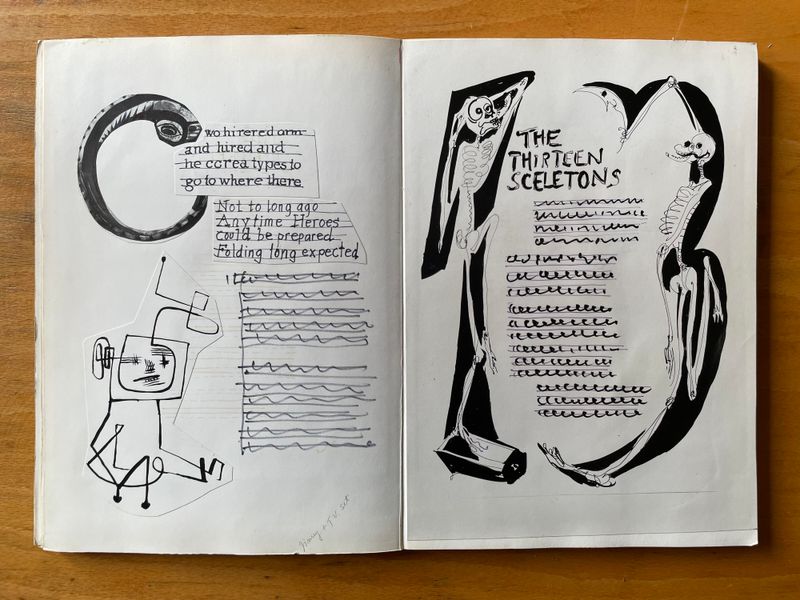 wo hirered arm
and hired and
he ccrea types to
go to where there
Not to long ago
Anytime Heroes
could be prepared
Folding long expected
THE
THIRTEEN
SCELETONS
+ T.V. set